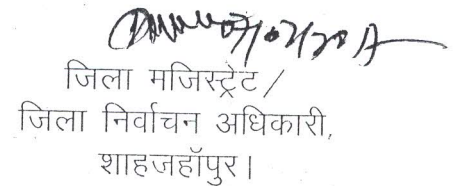 जिला मजिस्ट्रेट/
जिला निर्वाचन अधिकारी,
शाहजहॉपुर।